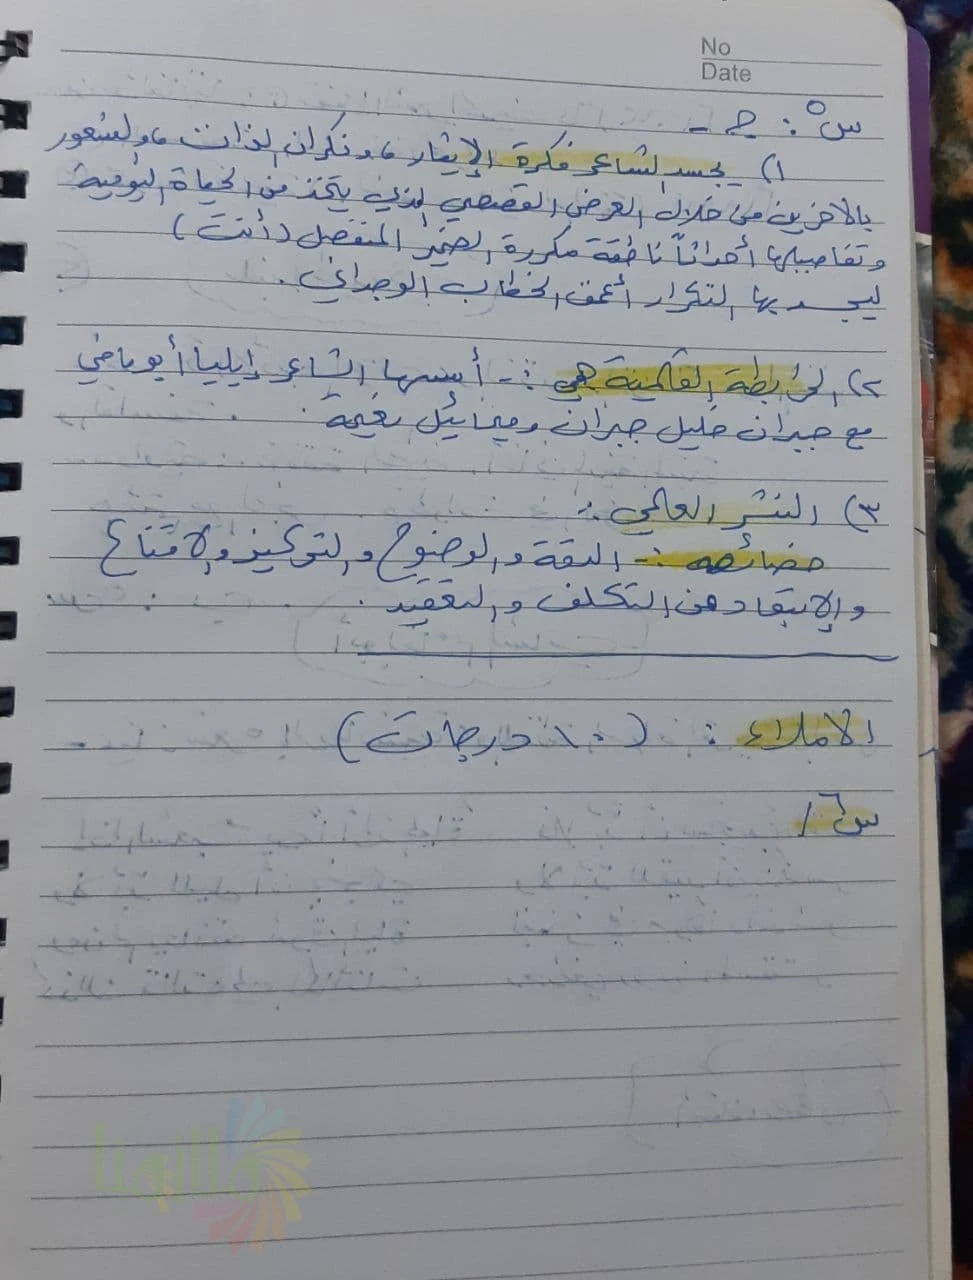 No
Date
س٥: ج -
١) يجسد الشاعر فكرة الإيثار ، ونكران الذات ، والشعور
بالآخرين من خلال العرض القصصي الذي يتخذ من الحياة اليومية
وتفاصيلها أحداثاً ناطقة مكررة الضمير المنفصل (أنت)
ليجسد بها التكرار أعمق الخطاب الوجداني .
٢) الرابطة القلمية هي :- أسسها الشاعر إيليا أبو ماضي
مع جبران خليل جبران وميخائيل نعيمة
٣) النثر العالمي :-
خصائصه :- الدقة والوضوح والتركيز والاقناع
والإبتعاد عن التكلف والتعقيد .
الاملاء : (١٠ درجات)
س٦ /